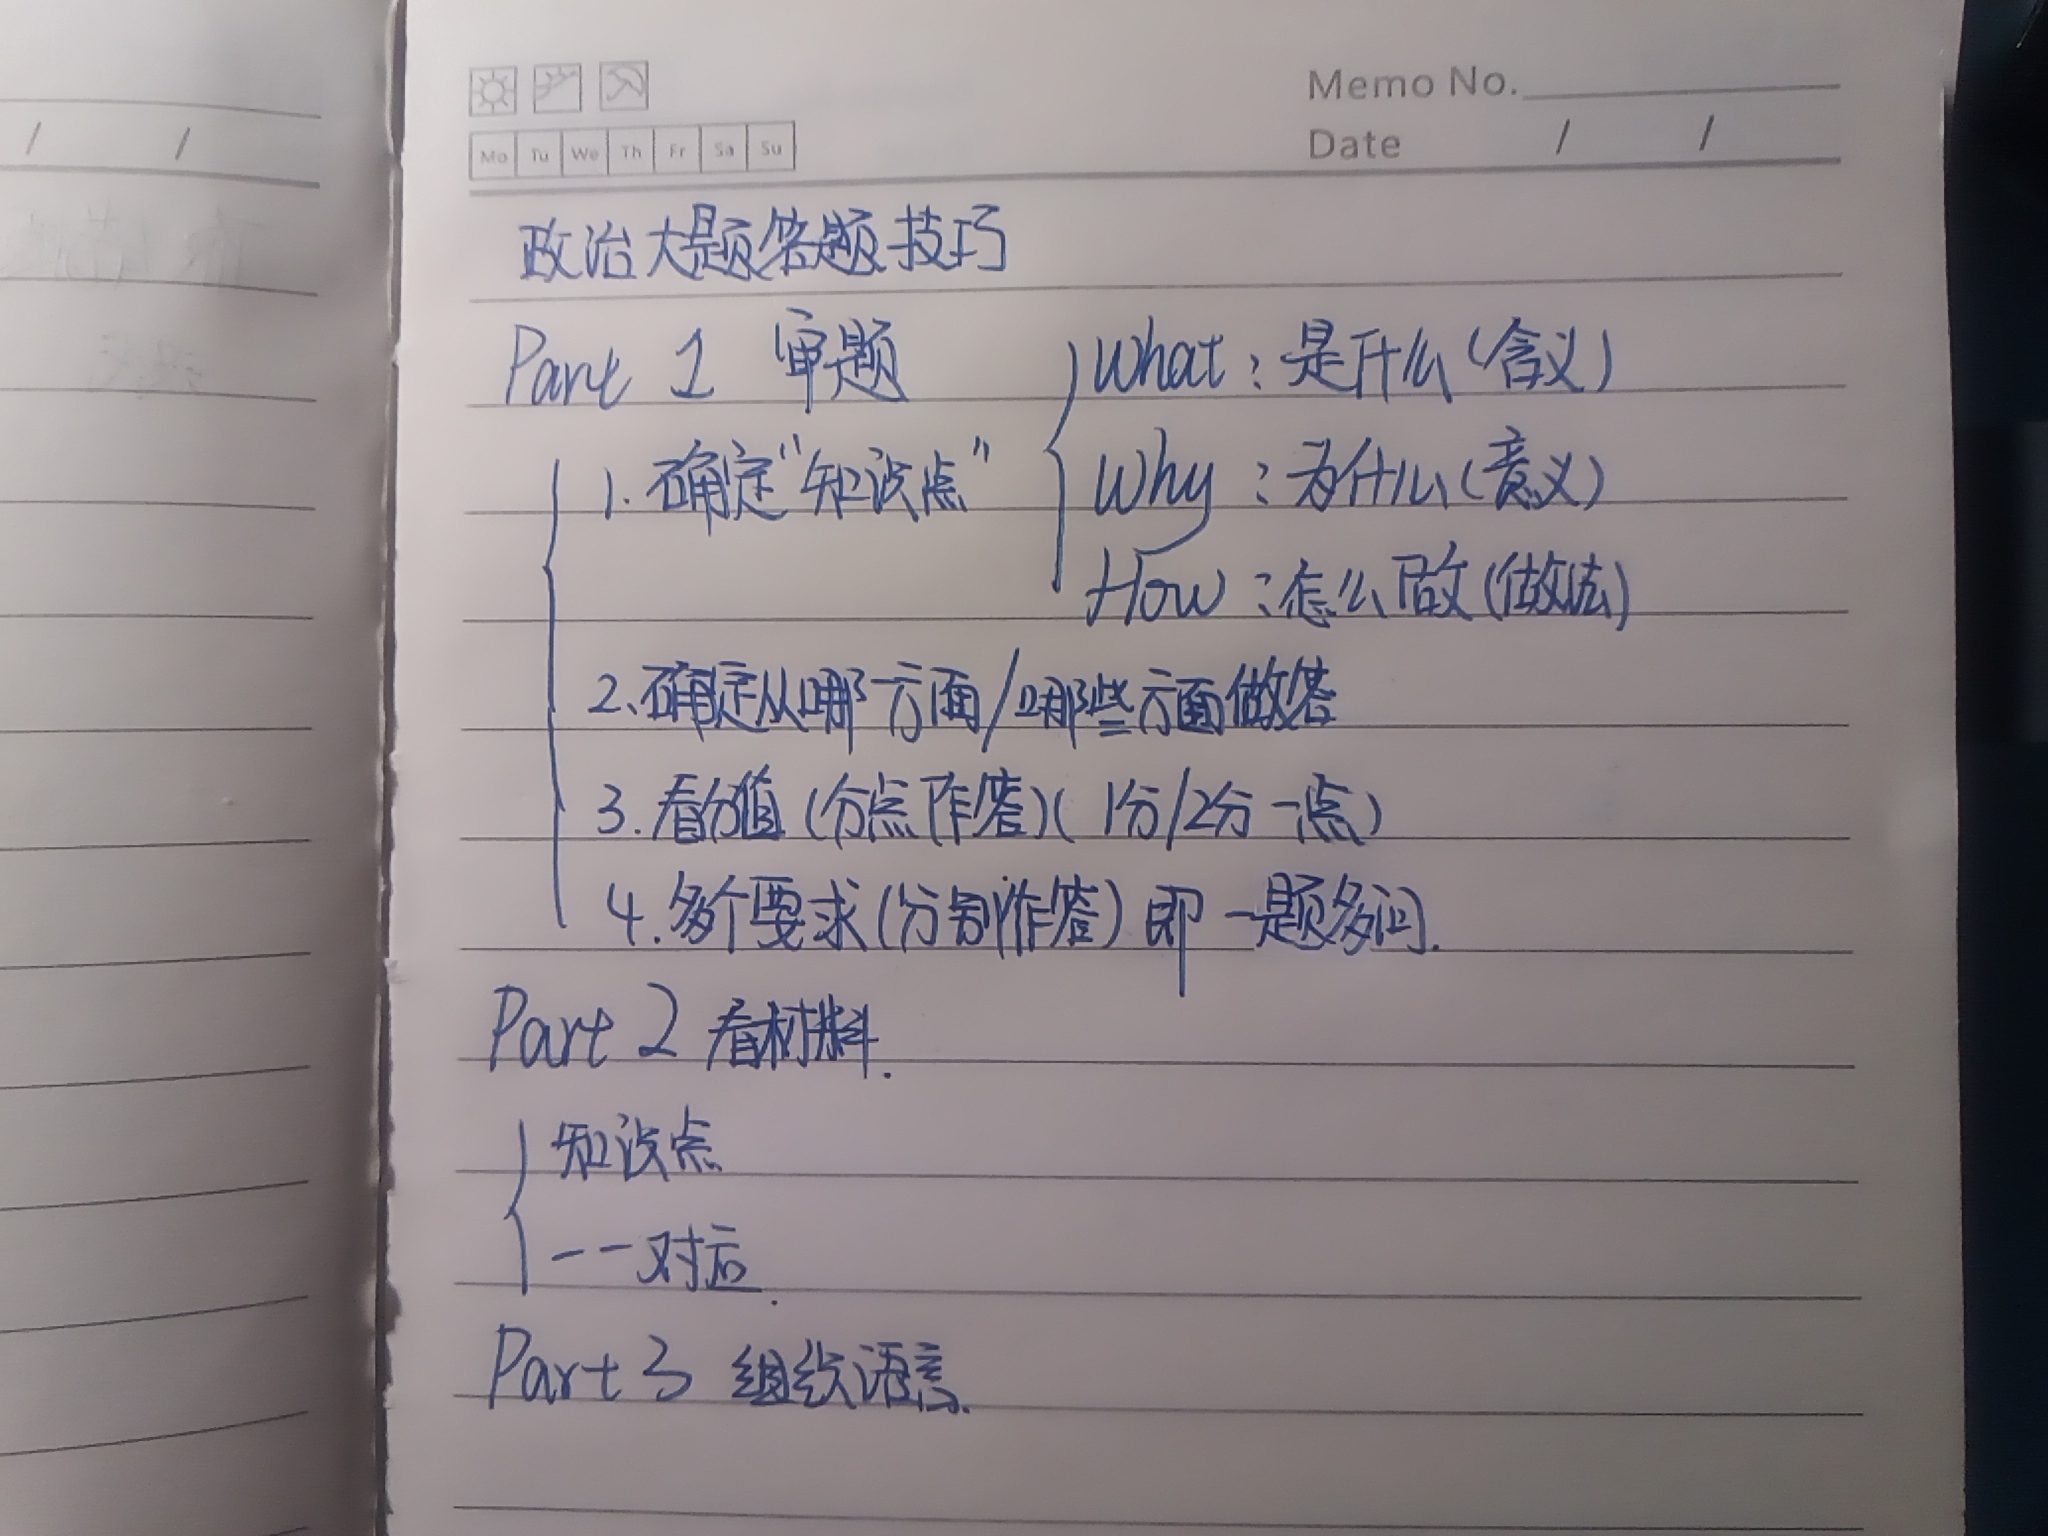 Memo No.
Mo Tu We Th Fr Sa Su
Date / /
政治大题答题技巧
Part 1 审题
What：是什么（含义）
1. 确定“知识点”
Why：为什么（意义）
How：怎么做（做法）
2. 确定从哪一方面/哪些方面做答
3. 看分值（分点作答）（1分/2分一点）
4. 多个要求（分别作答）即一题多问.
Part 2 看材料.
知识点
一一对应.
Part 3 组织语言.